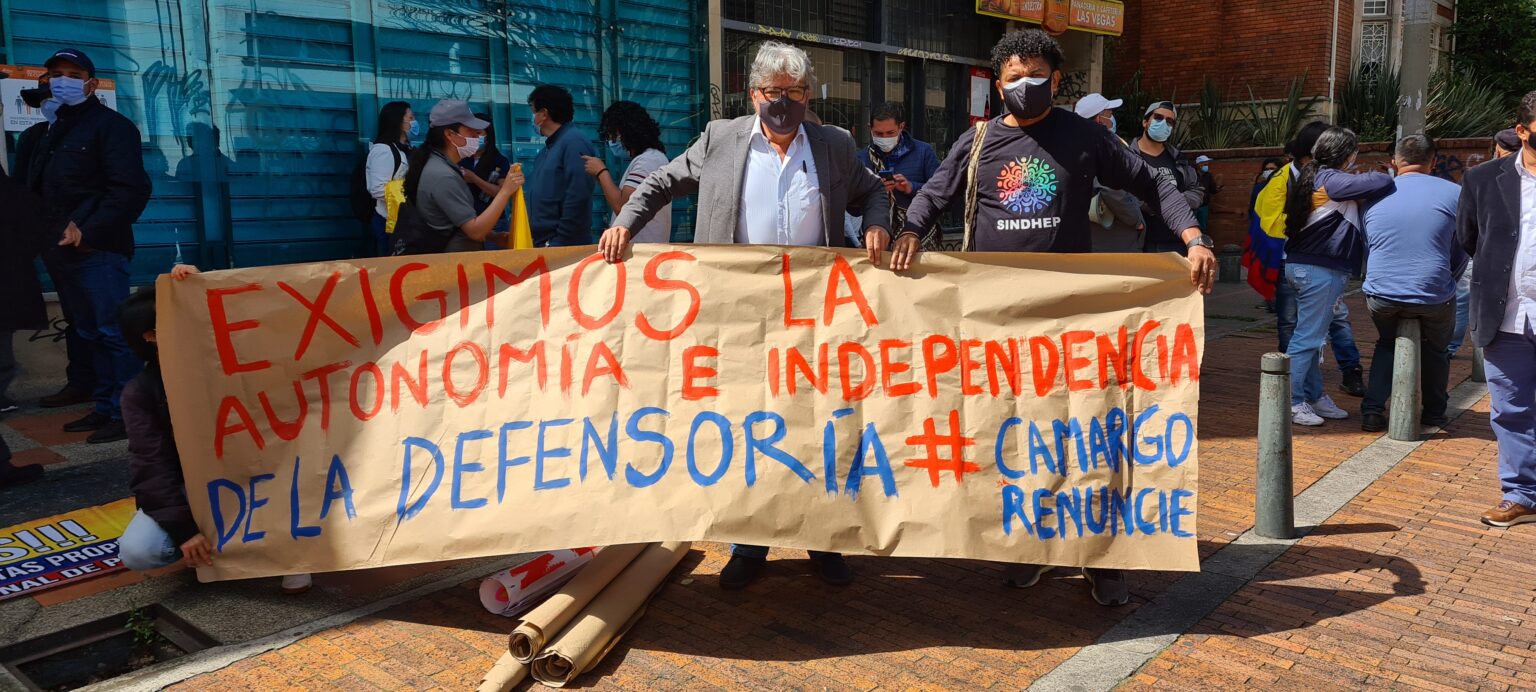 LAS VEGAS
SINDHEP
EXIGIMOS LA
AUTONOMÍA E INDEPENDENCIA
DE LA DEFENSORÍA # CAMARGO
RENUNCIE
S!!!
TAS PROP
NAL DE P